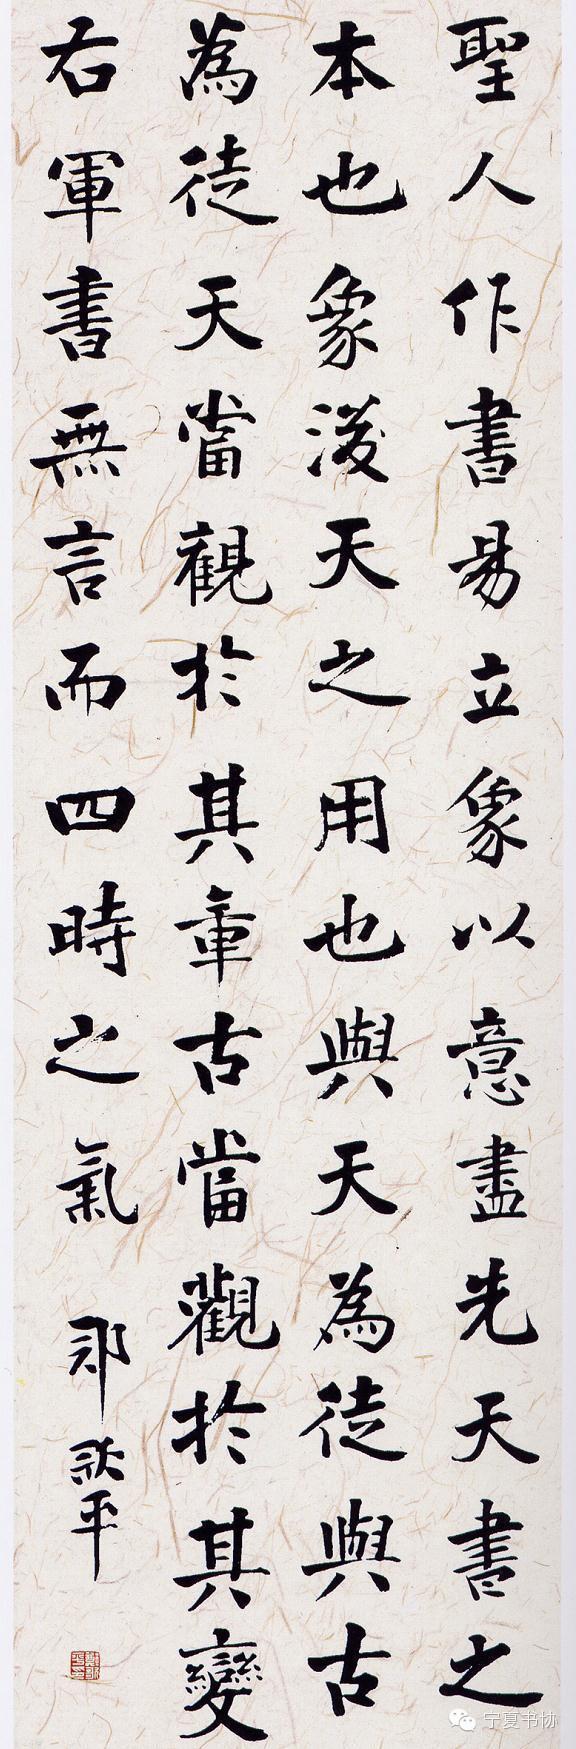 聖人作書易立象以意盡先天書之
本也象後天之用也與天為徒與古
為徒天當觀於其章古當觀於其變
右軍書無言而四時之氣
平
宁夏书协